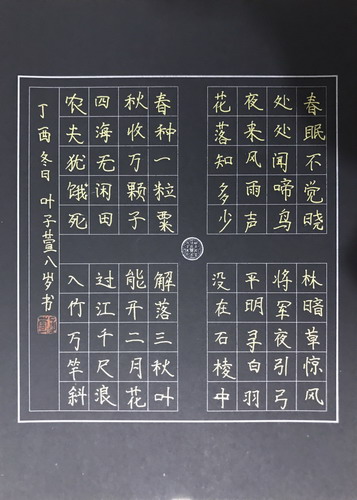 春眠不觉晓
处处闻啼鸟
夜来风雨声
花落知多少
林暗草惊风
将军夜引弓
平明寻白羽
没在石棱中
春种一粒粟
秋收万颗子
四海无闲田
农夫犹饿死
解落三秋叶
能开二月花
过江千尺浪
入竹万竿斜
丁酉冬日 叶子萱八岁书